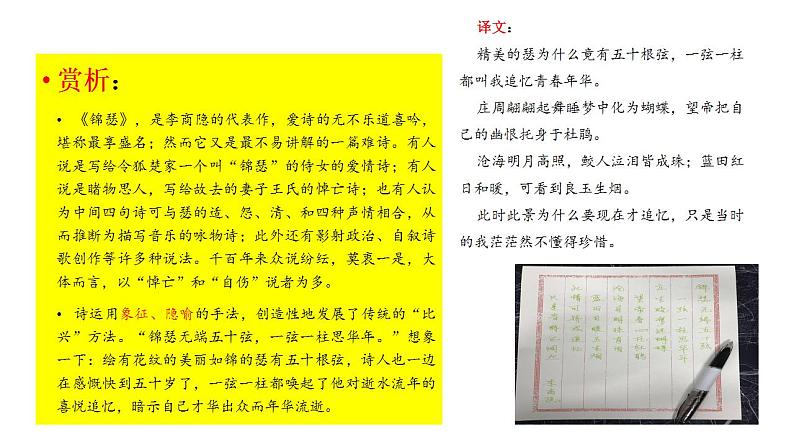 • 赏析：
• 《锦瑟》，是李商隐的代表作，爱诗的无不乐道喜吟，
堪称最享盛名；然而它又是最不易讲解的一篇难诗。有人
说是写给令狐楚家一个叫“锦瑟”的侍女的爱情诗；有人
说是睹物思人，写给故去的妻子王氏的悼亡诗；也有人认
为中间四句诗可与瑟的适、怨、清、和四种声情相合，从
而推断为描写音乐的咏物诗；此外还有影射政治、自叙诗
歌创作等许多种说法。千百年来众说纷纭，莫衷一是，大
体而言，以“悼亡”和“自伤”说者为多。
• 诗运用象征、隐喻的手法，创造性地发展了传统的“比
兴”方法。“锦瑟无端五十弦，一弦一柱思华年。”想象
一下：绘有花纹的美丽如锦的瑟有五十根弦，诗人也一边
在感慨快到五十岁了，一弦一柱都唤起了他对逝水流年的
喜悦追忆，暗示自己才华出众而年华流逝。
译文：
精美的瑟为什么竟有五十根弦，一弦一柱
都叫我追忆青春年华。
庄周翩翩起舞睡梦中化为蝴蝶，望帝把自
己的幽恨托身于杜鹃。
沧海明月高照，鲛人泣泪皆成珠；蓝田红
日和暖，可看到良玉生烟。
此时此景为什么要现在才追忆，只是当时
的我茫茫然不懂得珍惜。
锦瑟无端五十弦
一弦一柱思华年
庄生晓梦迷蝴蝶
望帝春心托杜鹃
沧海月明珠有泪
蓝田日暖玉生烟
此情可待成追忆
只是当时已惘然
李商隐